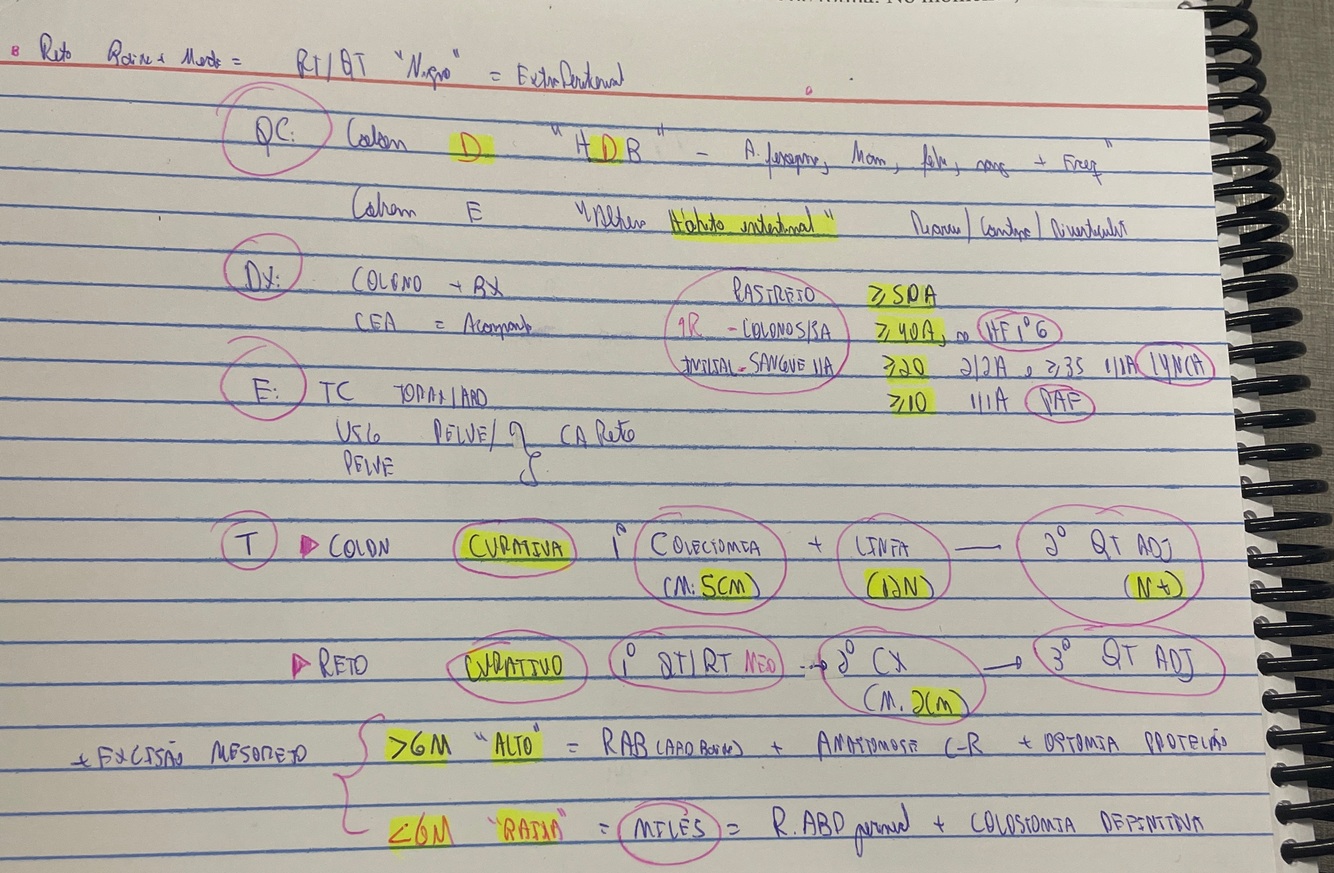 Reto Baixo + Medio = RT/QT "Neo" = ExtraPeritoneal
QC: Colon D "HDB" - A. ferropriva, Mam, febre, sang + Freq"
Colon E "Altera Habito intestinal" Diarreia/Constip/Diverticulit
DX: COLONO + BX RASTREIO ≥50A
CEA = Acompanh 1R - COLONOS/ ≥40A, ou HF 1ºG
INICIAL - SANGUE 1/A ≥20 2/2A e ≥35 1/1A LYNCH
E: TC TORAX/ABD ≥10 1/1A PAF
USG PELVE/ CA Reto
PELVE
T COLON CURATIVA 1º COLECTOMIA + LINFA — 2º QT ADJ
(M: 5CM) (12N) (N+)
RETO CURATIVO 1º QT/RT NEO → 2º CX → 3º QT ADJ
(M. 2CM)
+ EXCISÃO MESORRETO >6M "ALTO" = RAB (ABD Baixa) + ANASTOMOSE C-R + OSTOMIA PROTEÇÃO
<6M "BAIXA" = MILES = R. ABD perineal + COLOSTOMIA DEFINITIVA